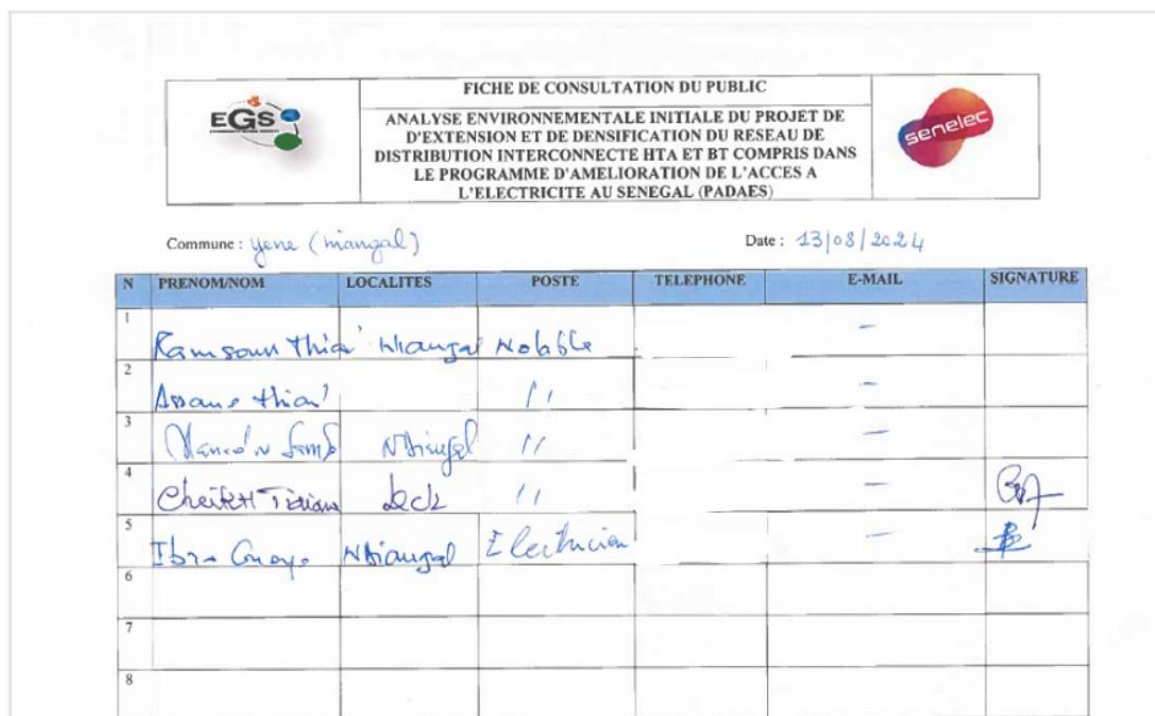 EGS
FICHE DE CONSULTATION DU PUBLIC
ANALYSE ENVIRONNEMENTALE INITIALE DU PROJET DE
D'EXTENSION ET DE DENSIFICATION DU RESEAU DE
DISTRIBUTION INTERCONNECTE HTA ET BT COMPRIS DANS
LE PROGRAMME D'AMELIORATION DE L'ACCES A
L'ELECTRICITE AU SENEGAL (PADAES)
senelec
Commune : Yene (niangal) Date : 13/08/2024
N PRENOM/NOM LOCALITES POSTE TELEPHONE E-MAIL SIGNATURE
1 Notable -
2 Assane " -
3 " -
4 Cheikh " -
5 Electricien -
6
7
8